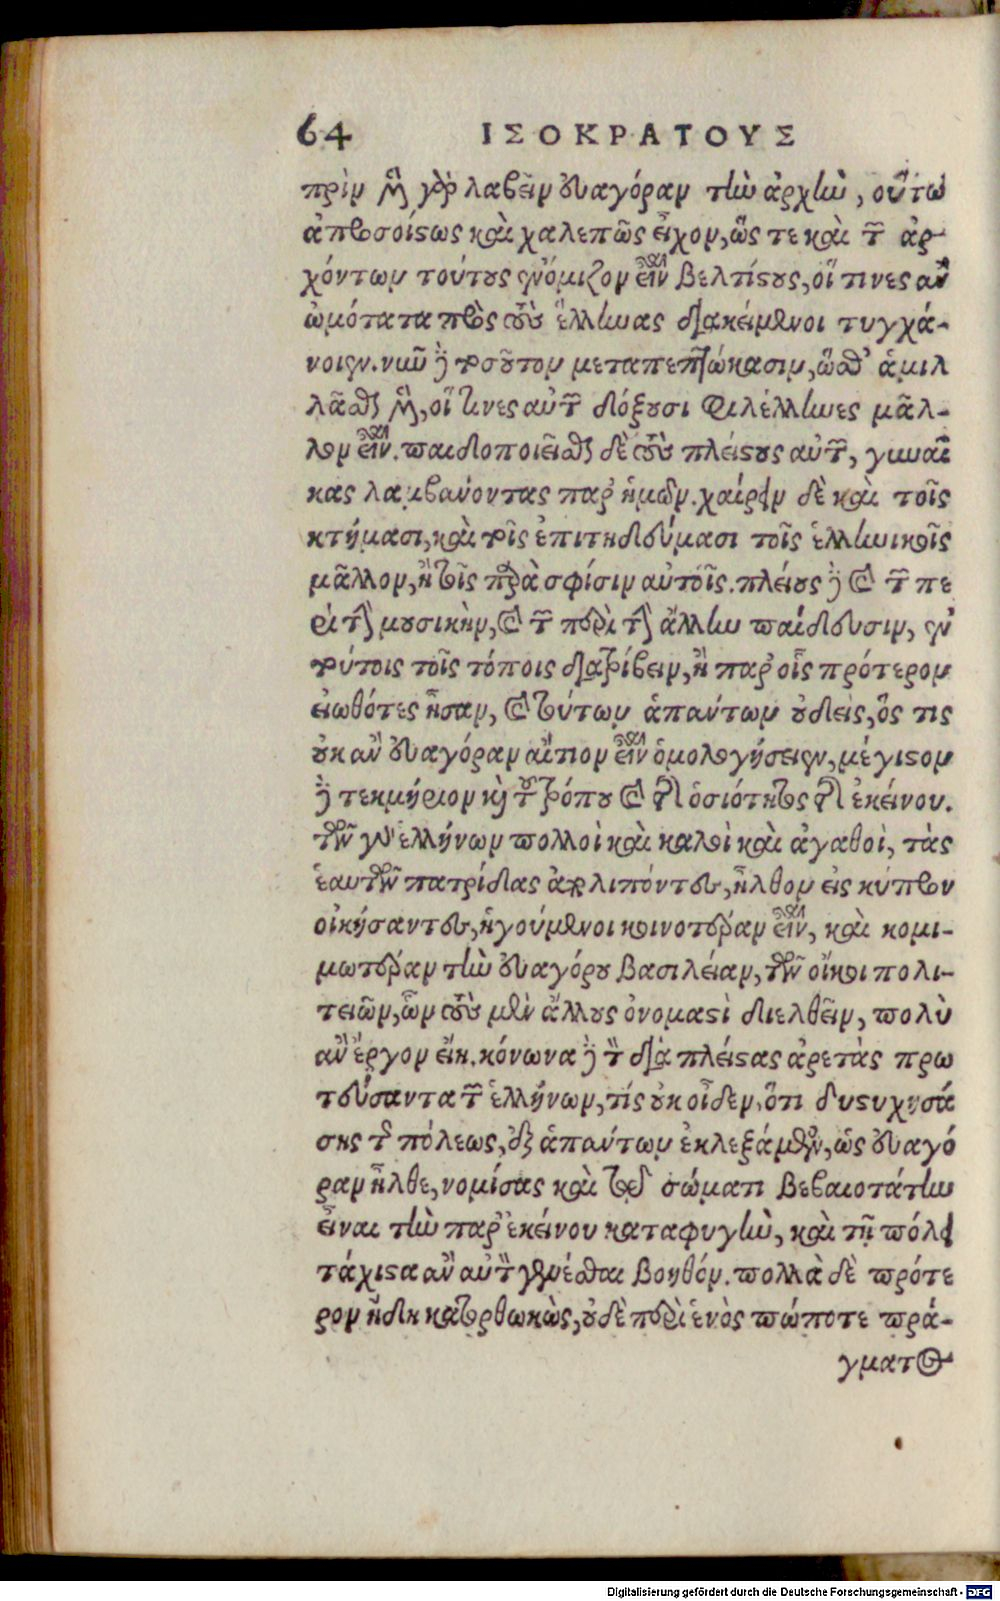 64 ΙΣΟΚΡΑΤΟΥΣ
πρὶν μὲν γὰρ λαβεῖν εὐαγόραν τὴν ἀρχὴν, οὕτω
ἀπροσοίστως καὶ χαλεπῶς εἶχον, ὥς τε καὶ τῶν ἀρ-
χόντων τούτους ἐνόμιζον εἶναι βελτίστους, οἵ τινες ἂν
ὠμότατα πρὸς τοὺς ἕλληνας διακείμενοι τυγχά-
νοιεν. νῦν δὲ τοσοῦτον μεταπεπτώκασιν, ὥσθ' ἁμιλ
λᾶσθαι μὲν, οἵ τινες αὐτῶν δόξουσι φιλέλληνες μᾶλ-
λον εἶναι. παιδοποιεῖσθαι δὲ τοὺς πλείστους αὐτῶν, γυναῖ
κας λαμβάνοντας παρ' ἡμῶν. χαίρειν δὲ καὶ τοῖς
κτήμασι, καὶ τοῖς ἐπιτηδεύμασι τοῖς ἑλληνικοῖς
μᾶλλον, ἢ τοῖς παρὰ σφίσιν αὐτοῖς. πλείους δὲ καὶ τῶν πε
ρὶ τὴν μουσικὴν, καὶ τῶν περὶ τὴν ἄλλην παίδευσιν, ἐν
τούτοις τοῖς τόποις διατρίβειν, ἢ παρ' οἷς πρότερον
εἰωθότες ἦσαν, καὶ τούτων ἁπάντων οὐδεὶς, ὅς τις
οὐκ ἂν εὐαγόραν αἴτιον εἶναι ὁμολογήσειεν, μέγιστον
δὲ τεκμήριον καὶ τοῦ τρόπου καὶ τῆς ὁσιότητος τῆς ἐκείνου.
τῶν γὰρ ἑλλήνων πολλοὶ καὶ καλοὶ καὶ ἀγαθοὶ, τὰς
ἑαυτῶν πατρίδας ἀπολιπόντες, ἦλθον εἰς κύπρον
οἰκήσαντες, ἡγούμενοι κοινοτέραν εἶναι, καὶ κομι-
μωτέραν τὴν εὐαγόρου βασιλείαν, τῶν οἴκοι πολι-
τειῶν, ὧν τοὺς μὲν ἄλλους ὀνομαστὶ διελθεῖν, πολὺ
ἂν ἔργον εἴη. κόνωνα δὲ τὸν διὰ πλείστας ἀρετὰς πρω
τεύσαντα τῶν ἑλλήνων, τίς οὐκ οἶδεν, ὅτι δυστυχησά
σης τῆς πόλεως, ἐξ ἁπάντων ἐκλεξάμενος, ὡς εὐαγό
ραν ἦλθε, νομίσας καὶ τῷ σώματι βεβαιοτάτην
εἶναι τὴν παρ' ἐκείνου καταφυγὴν, καὶ τῇ πόλει
τάχιστα ἂν αὐτὸν γενέσθαι βοηθόν. πολλὰ δὲ πρότε
ρον ἤδη κατορθωκὼς, οὐδὲ περὶ ἑνὸς πώποτε πρά-
γματος
Digitalisierung gefördert durch die Deutsche Forschungsgemeinschaft - DFG